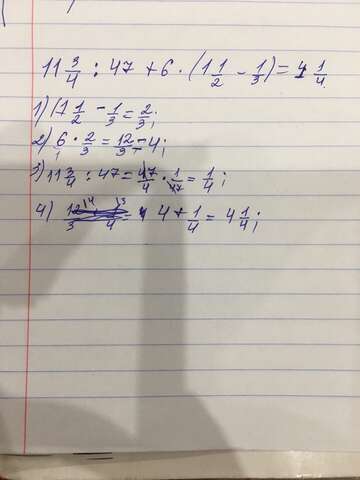 11 3/4 : 47 + 6 · (1 1/2 - 1/3) = 4 1/4
1) 1 1/2 - 1/3 = 2/3;
2) 6/1 · 2/3 = 12/3 = 4;
3) 11 3/4 : 47 = 47/4 · 1/47 = 1/4;
4) 4 + 1/4 = 4 1/4;